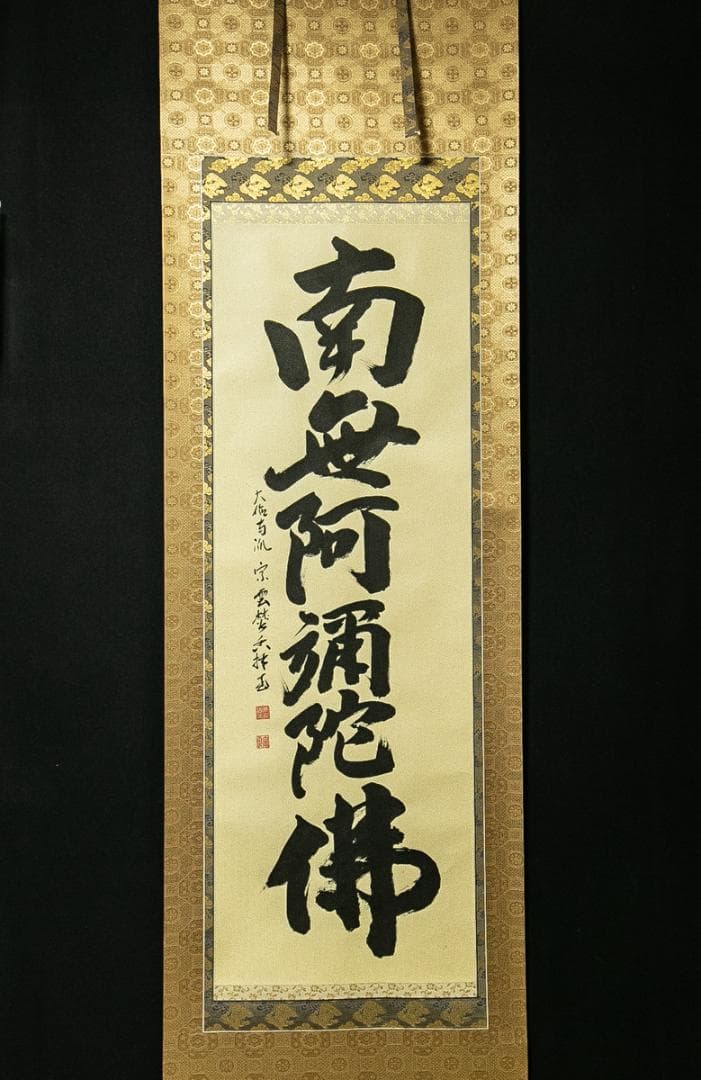 南無阿彌陀佛
大徳寺派 宗雲